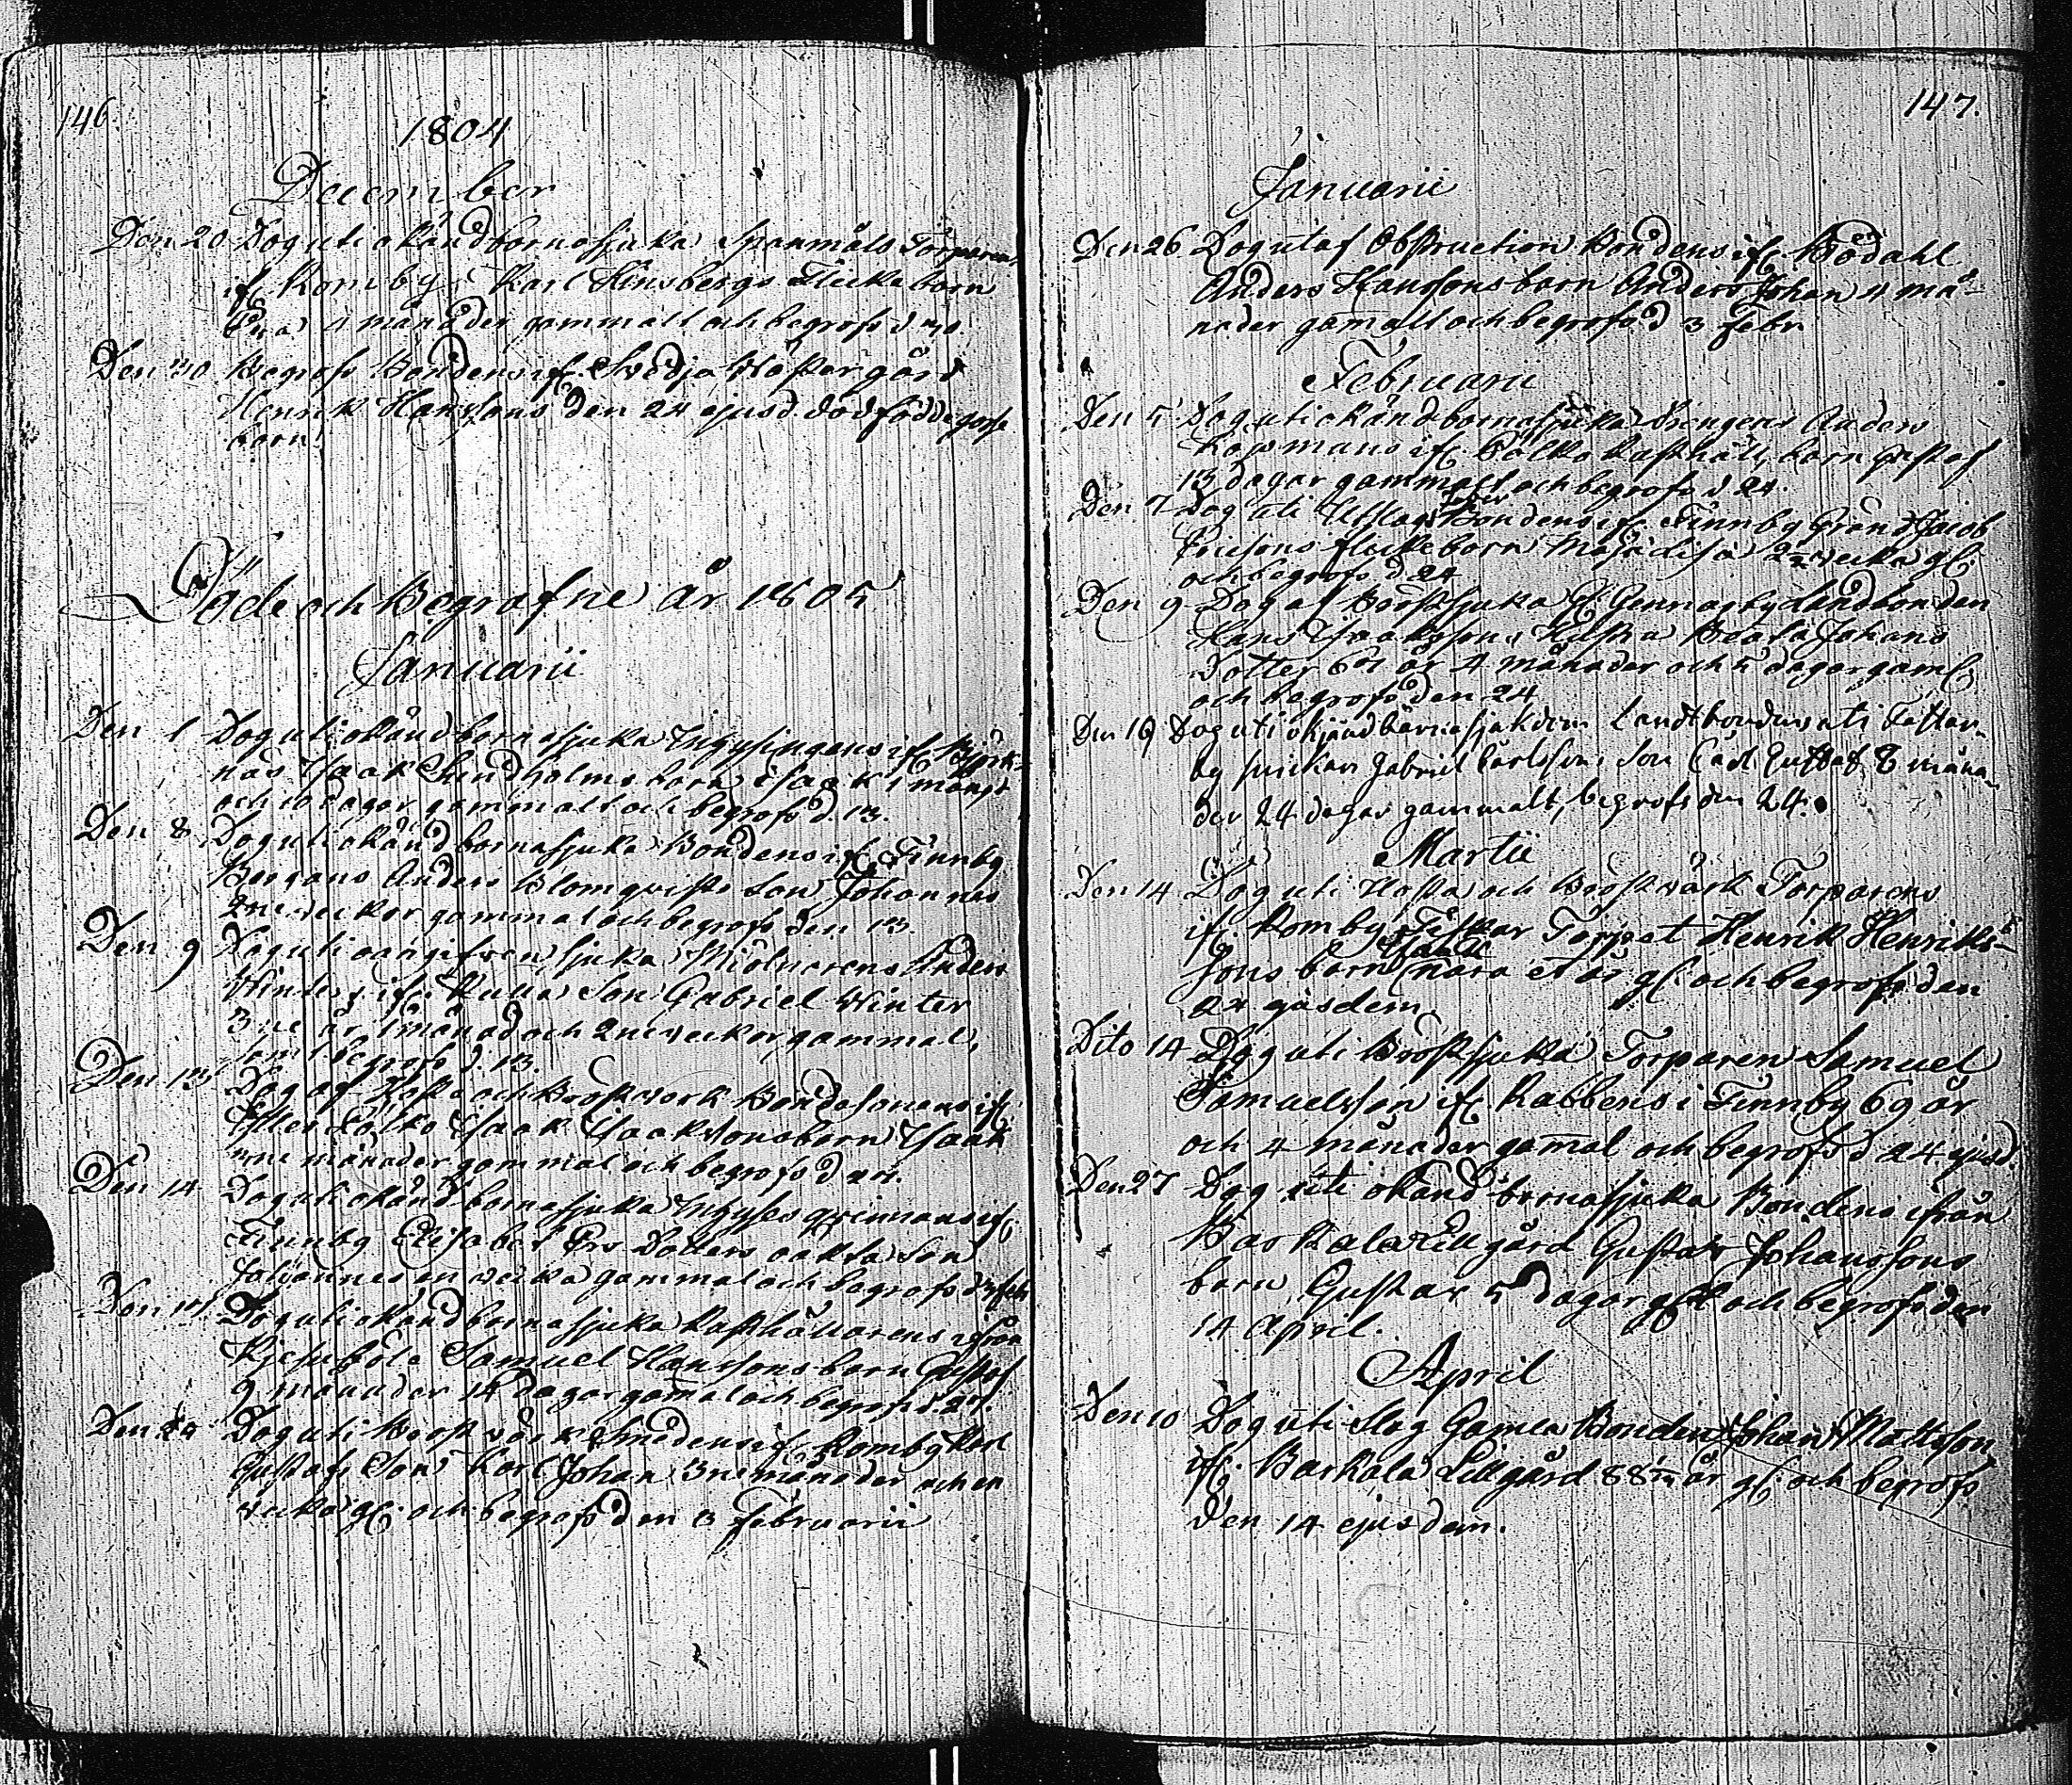 146.
1804
December
Den 20 Dog uti okänd bornasjuka Spanmåls Torparen
if. Kornby Karl Flinsbergs Flicka born
4 månader gammalt och begrofs d 30
Den 30 Begrofs Bondens if. Svedja Wäster gård
Henrik Hanssons den 24 ejusd dödfödde gosse
born
Döde och Begrafne år 1805
Januarii
Den 1 Dog uti okänd bornasjuka Inhysingens if. Björk-
näs Isaak Lindholms born Isaak 1 månad
och 10 dagar gammalt och begrofs d. 13.
Den 8 Dog uti okänd bornasjuka Bondens if. Finnby
Anders Blomqvists Son Johannes
2ne veckor gammal och begrofs den 13.
Den 9 Dog uti oangifven sjuka Miölnarens Anders
Winters if. Son Gabriel Winter
3ne år 1 månad och 2ne veckor gammal,
samt begrofs d. 13.
Den 13 Dog af Hosta och Bröstvärk Bondesonens if.
Pålko Isaak Isaakssons born Isaak
månader gammal och begrofs d
Den 14 Dog uti okänd bornasjuka Inhyses qvinnans if.
Finnby Elisabet Ers Dotters oäkta Son
Johannes en vecka gammal och begrofs d
Den Dog uti okänd bornasjuka Rusthållarens ifrån
Samuel Hanssons born Gustaf
9 månader 14 dagar gamal och begrofs d 27.
Den Dog uti Bröst värk Smedens if. Kornby Karl
Gustafs Son Karl Johan 3ne månader och en
vecka gl. och begrofs den 3 Februarii
147.
Januarii
Den 26 Dog utaf Obstruction Bondens if. Bödahl
Anders Hanssons born Anders Johan 4 må-
nader gamalt och begrofs d 3 Febr.
Februarii
Den 5 Dog uti okänd bornasjuka Drengens Anders
if. Pålko Rusthåll, born Gustaf
13 dagar gammalt och begrofs d 24.
Den 7 Dog uti Utslag Bondens if. Finnby Gränd Jacob
Ericsons flicke born Maja Lisa 2½ vecka gl.
och begrofs d 24
Den 9 Dog af Bröstsjuka if. Gennarby Landbonden
Hans Isaakssons Hustru Beata Johans
Dotter 61 år 4 månader och 5 dagar gaml
och begrofs den 24
Den 19 Dog uti okjänd barnasjukdom Landtbondens uti Tottar-
by Gabriel Carlssons Son Carl Gustaf 8 måna-
der 24 dagar gammalt, begrofs den 24.
Martii
Den 14 Dog uti Hosta och Bröstvärk Torparens
if. Kornby Fiskar Torpet Henrik Henriks-
sons born nära et år gl. och begrofs den
24 ejusdem
Dito 14 Dog uti Bröstsjuka Torparen Samuel
Samuelsson if. Rabbens i Finnby 69 år
och 4 månader gamal och begrofs d 24 ejusd.
Den 27 Dog uti okänd bornasjuka Bondens ifrån
Barkala Lillgård Gustav Johanssons
born Gustav 5 dagar gl. och begrofs den
14 April.
April
Den 10 Dog uti slag Gamla Bonden Johan Mattsson
if. Barkala Lillgård 88½ år gl. och begrofs
den 14 ejusdem.